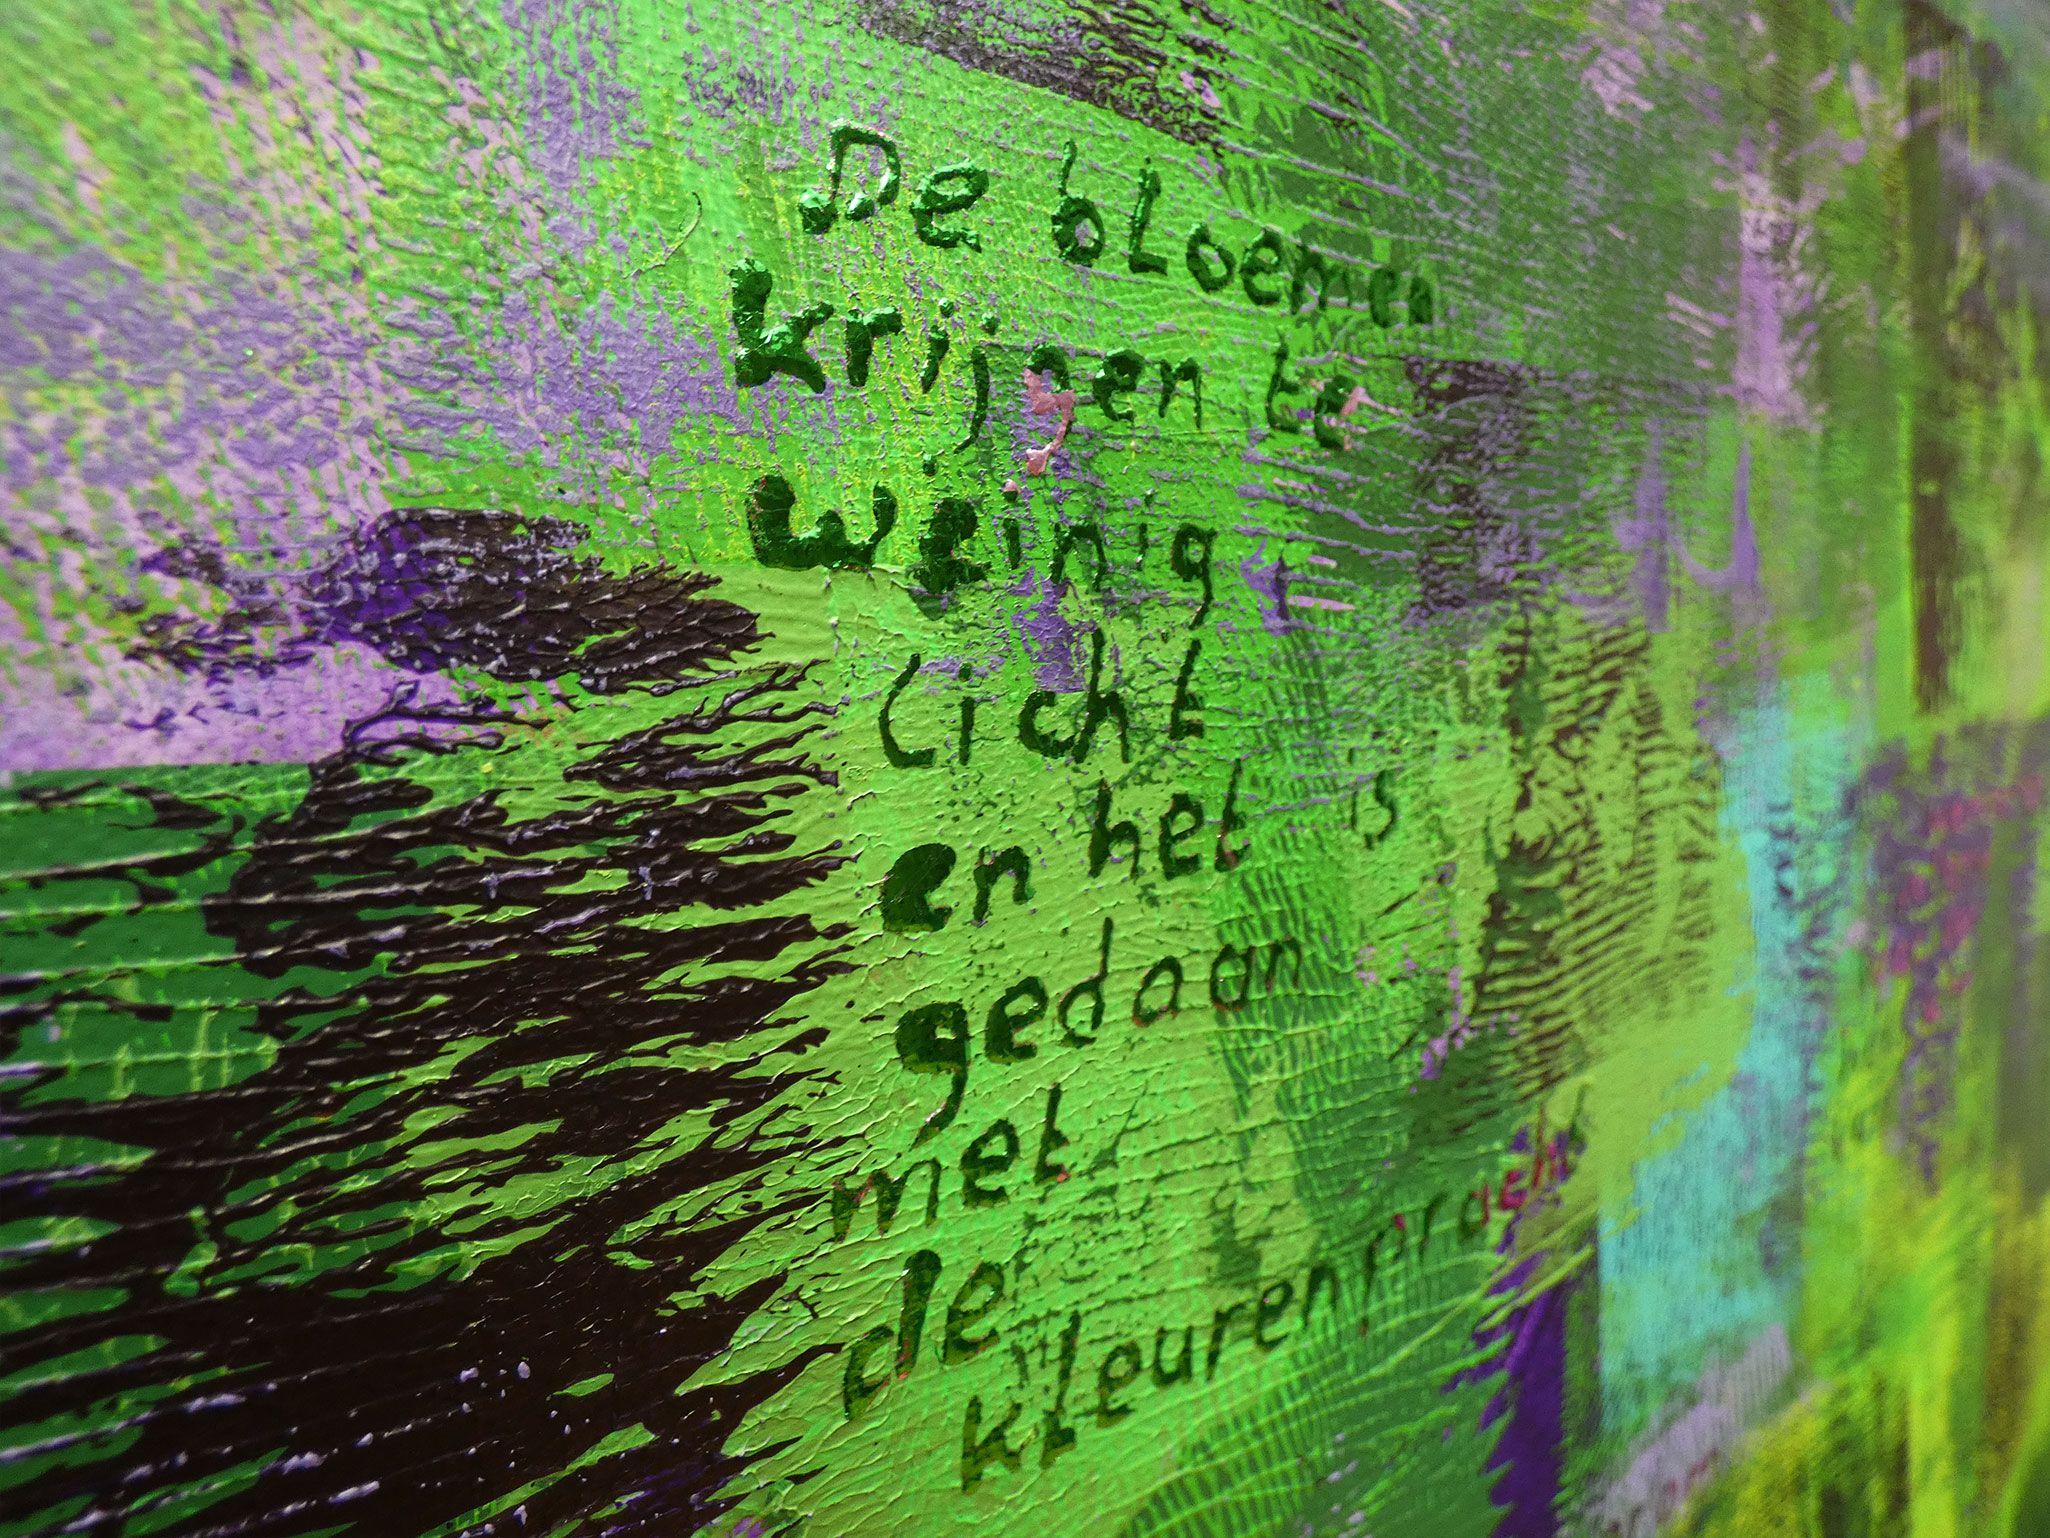 De bloemen
krijgen te
weinig
licht
en het is
gedaan
met
de
kleurenpracht